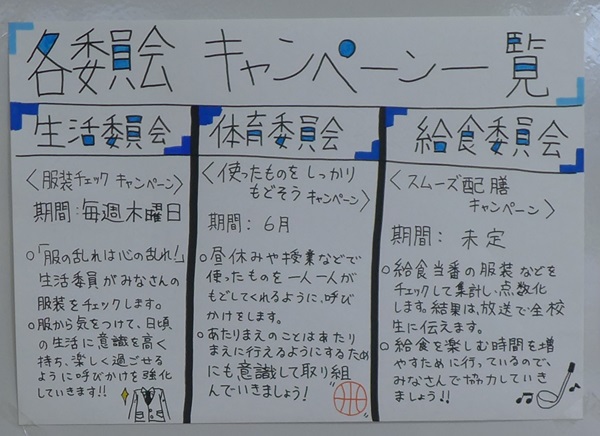 各委員会 キャンペーン一覧
生活委員会
〈服装チェック キャンペーン〉
期間:毎週木曜日
○「服の乱れは心の乱れ!」
生活委員がみなさんの
服装をチェックします。
○服から気をつけて、日頃
の生活に意識を高く
持ち、楽しく過ごせる
ように呼びかけを強化
していきます!!
体育委員会
〈使ったものを しっかり
もどそう キャンペーン〉
期間: 6月
○昼休みや授業などで
使ったものを一人一人が
もどしてくれるように、呼び
かけをします。
○あたりまえのことはあたり
まえに行えるようにするため
にも意識して取り組
んでいきましょう!
給食委員会
〈スムーズ配膳
キャンペーン〉
期間: 未定
○給食当番の服装などを
チェックして集計し、点数化
します。結果は、放送で全校
生に伝えます。
○給食を楽しむ時間を増
やすために行っているので、
みなさんで協力していき
ましょう!!